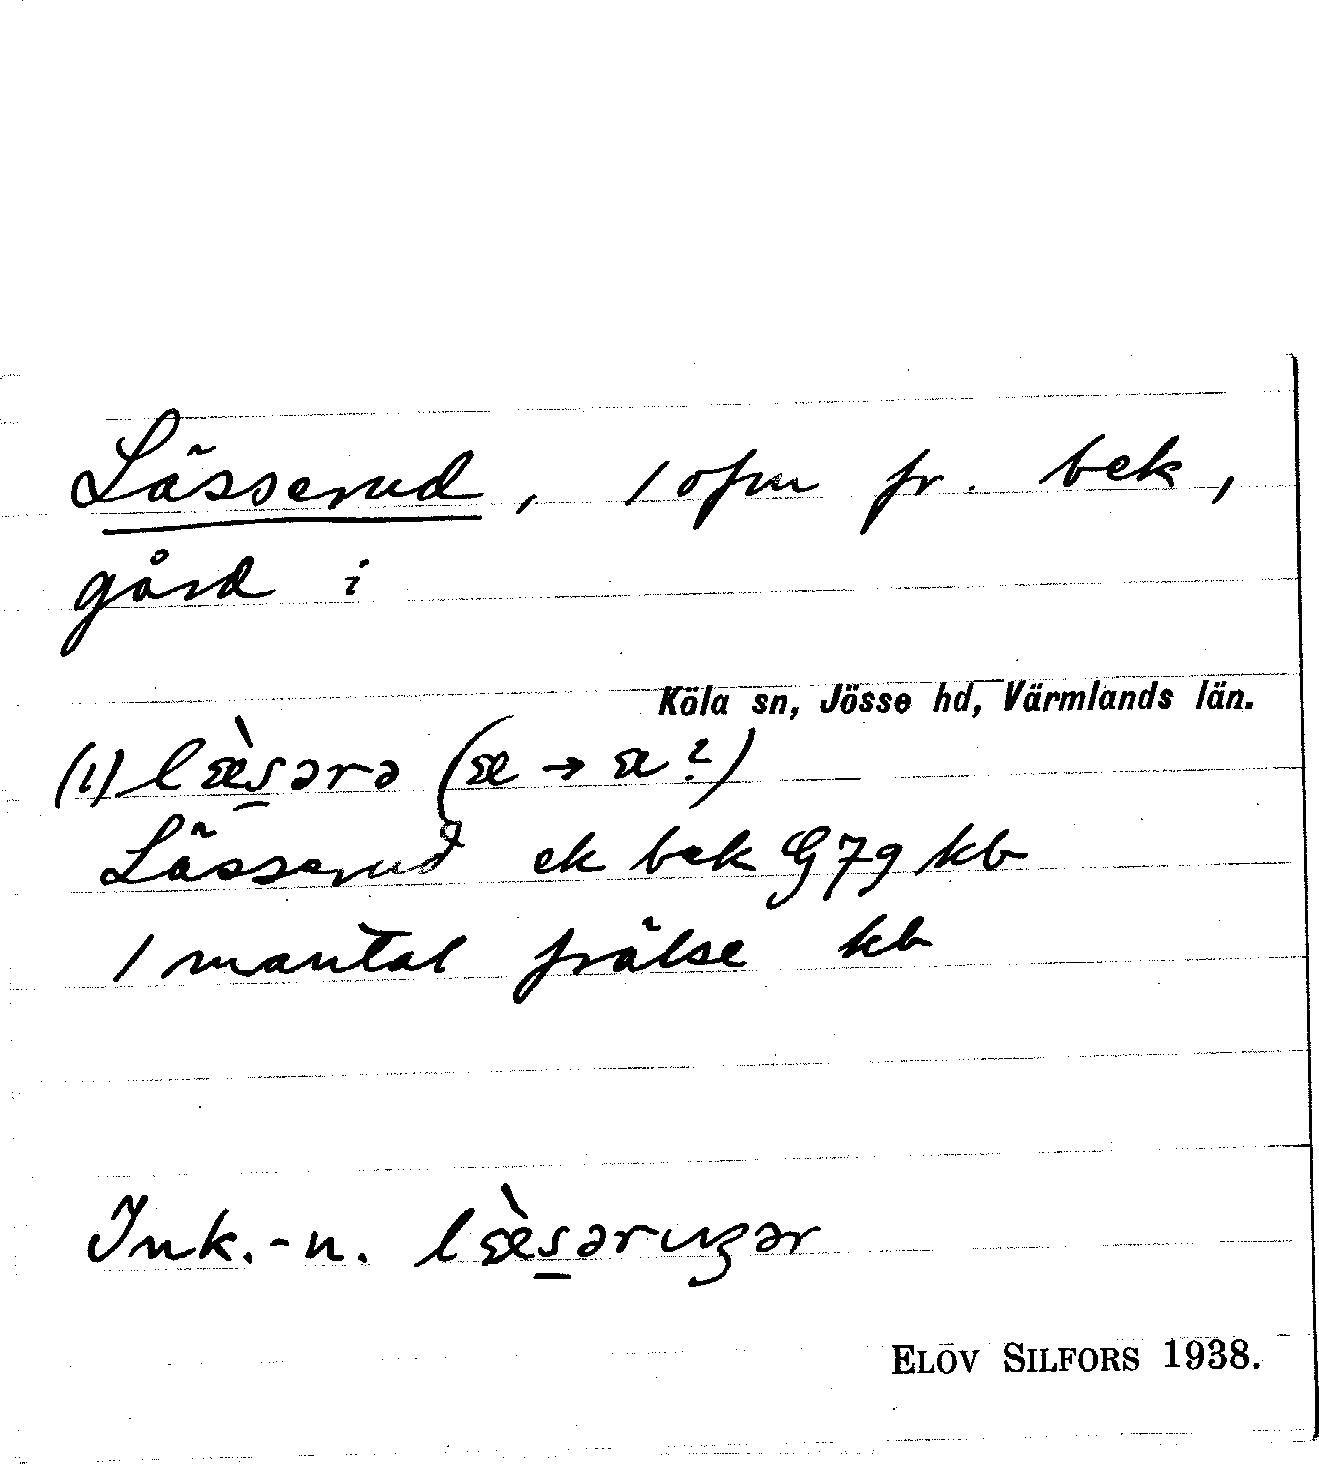 Lässerud, 1 ofm fr. bek,
gård i
Köla sn, Jösse hd, Värmlands län.
(1) læ̀sərə (æ → æ?)
Lässerud ek bek G7g kb
1 mantal frälse kb
Ink.-n. læ̀səruɡər
ELOV SILFORS 1938.